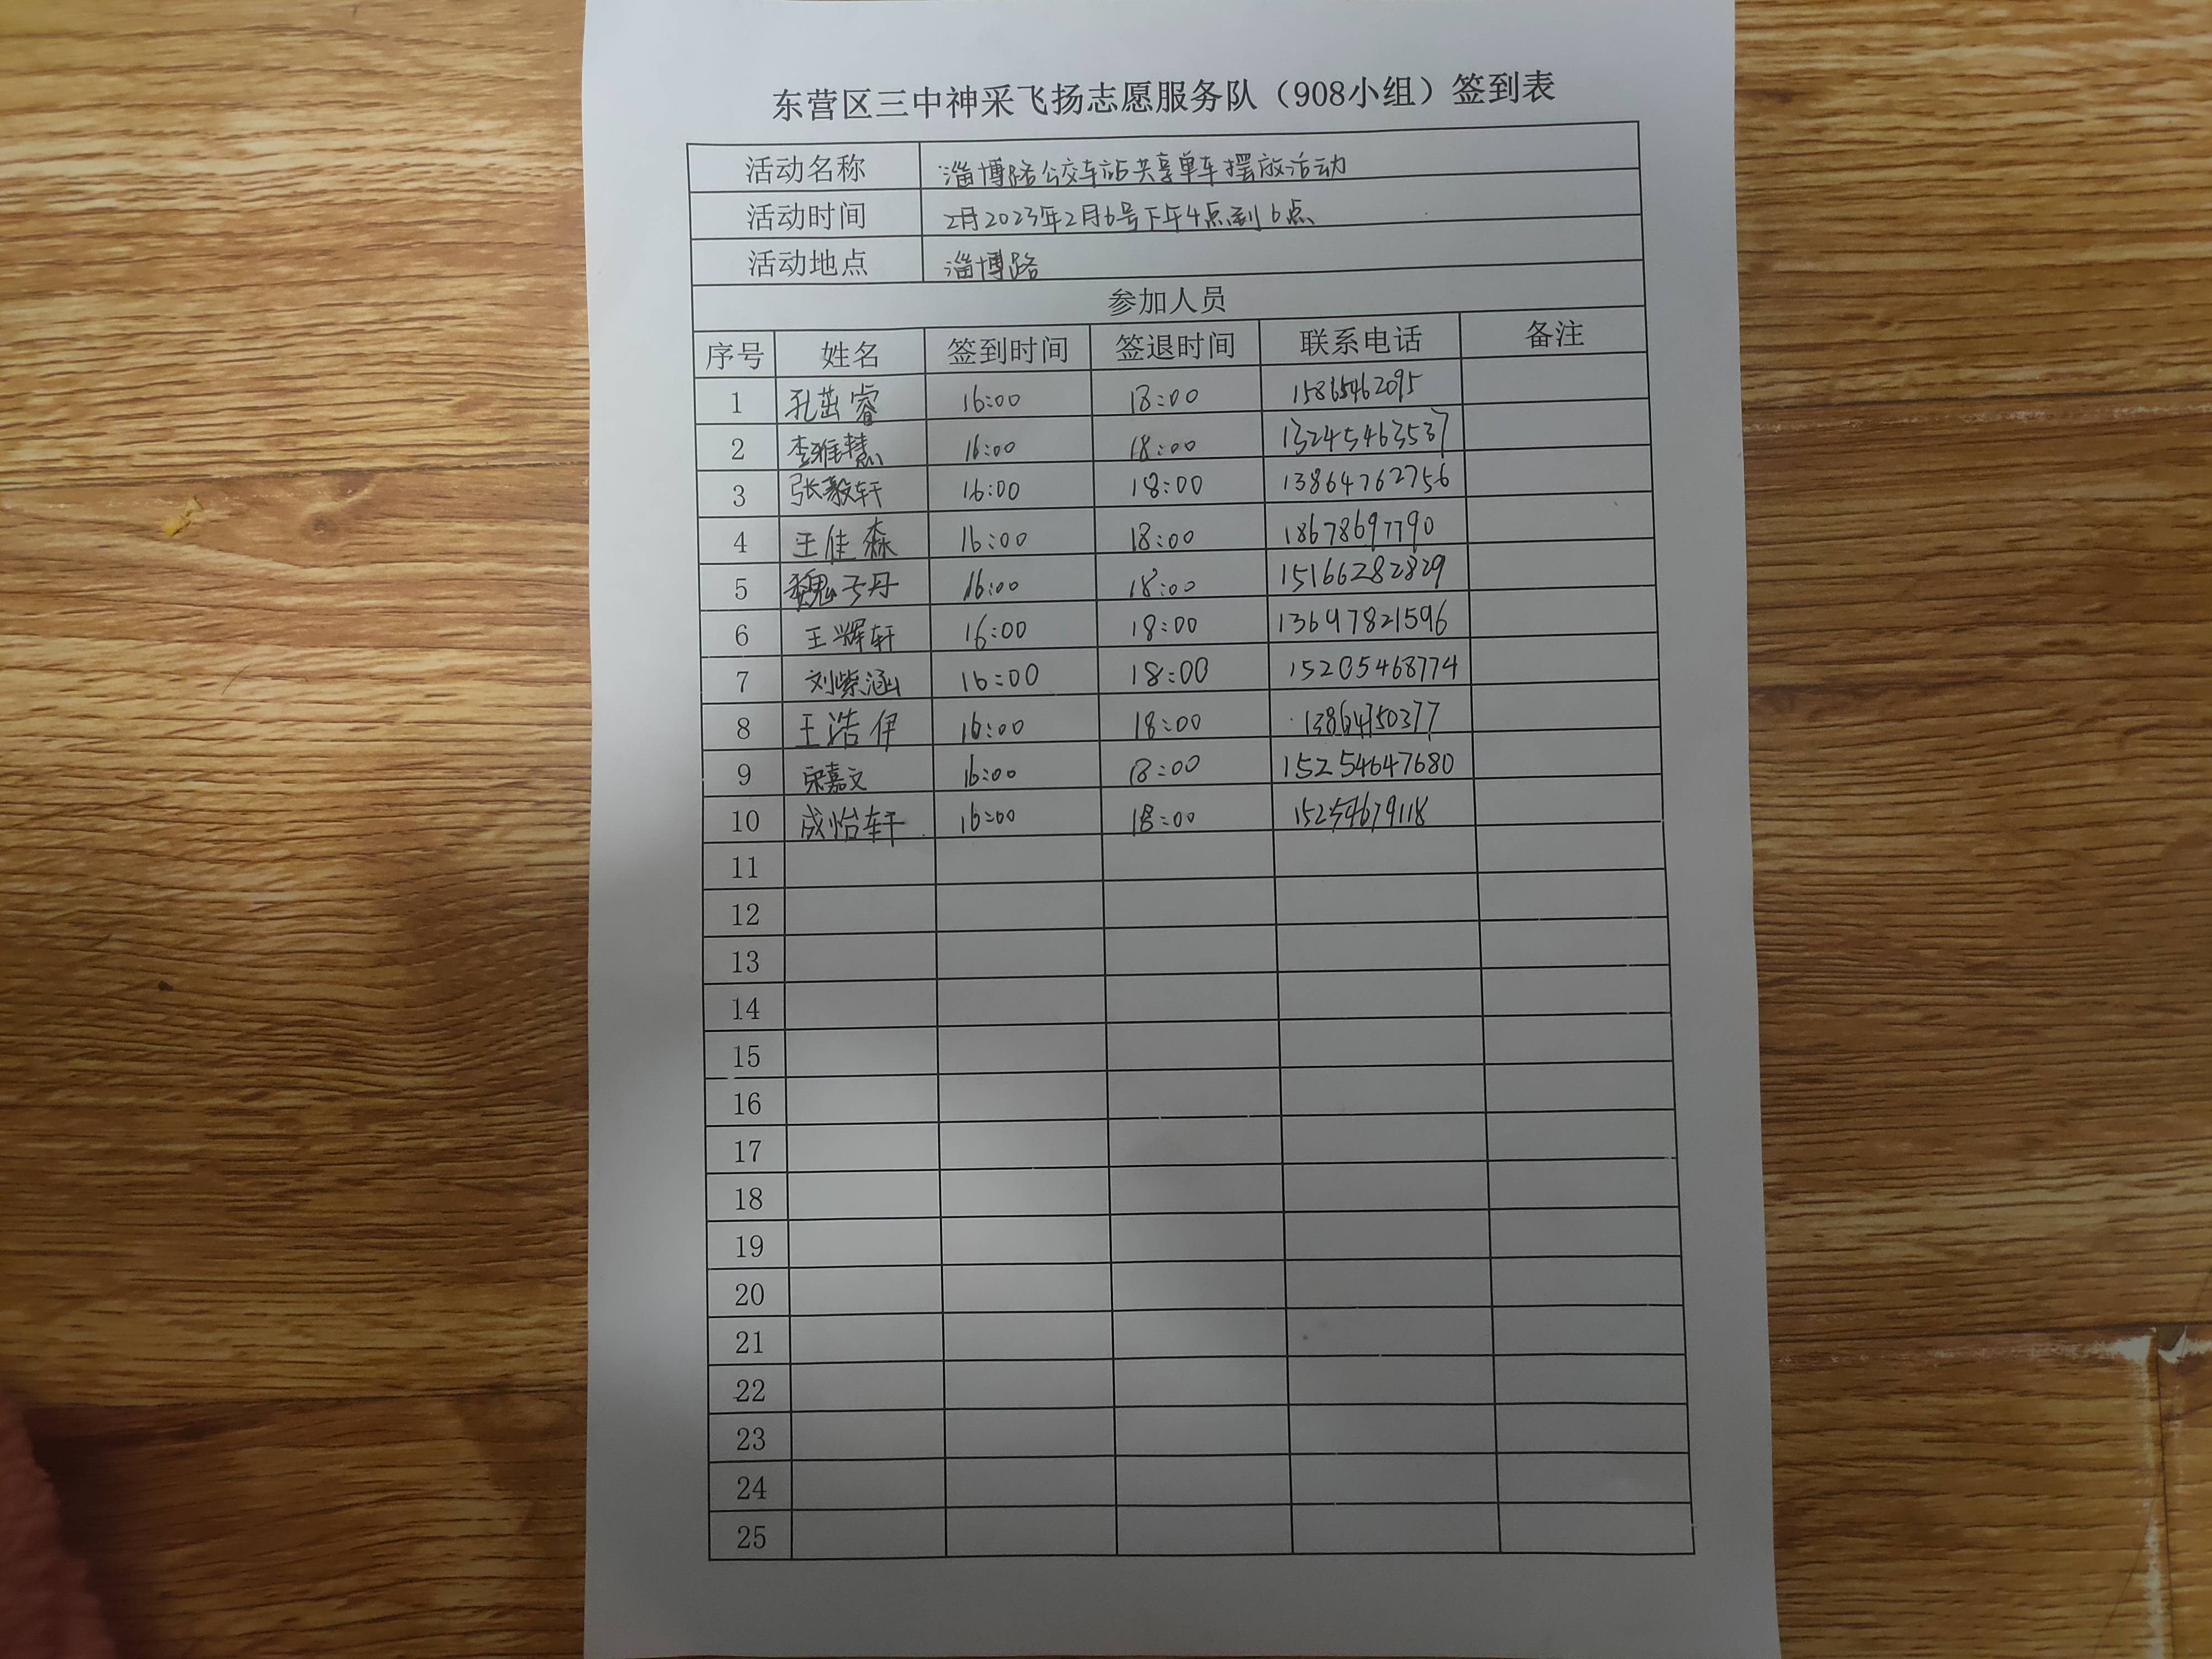 东营区三中神采飞扬志愿服务队（908小组）签到表
活动名称 淄博路公交车站共享单车摆放活动
活动时间 2月2023年2月6号下午4点到6点
活动地点 淄博路
参加人员
序号 姓名 签到时间 签退时间 联系电话 备注
1 孔茁睿 16:00 18:00 15865462095
2 李雅慧 16:00 18:00 13245463537
3 张毅轩 16:00 18:00 13864762756
4 王佳森 16:00 18:00 18678697790
5 魏子丹 16:00 18:00 15166282829
6 王辉轩 16:00 18:00 13697821596
7 刘紫涵 16:00 18:00 15205468774
8 王浩伊 16:00 18:00 13864750377
9 宋嘉文 16:00 18:00 15254647680
10 成怡轩 16:00 18:00 15254679118
11
12
13
14
15
16
17
18
19
20
21
22
23
24
25